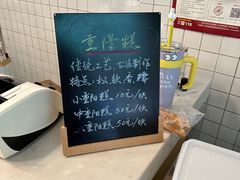 重陽糕
传统工艺.古法制作
特点:松.软.香.糯
小重阳糕 10元/块
中重阳糕 30元/块
重阳糕 50元/块